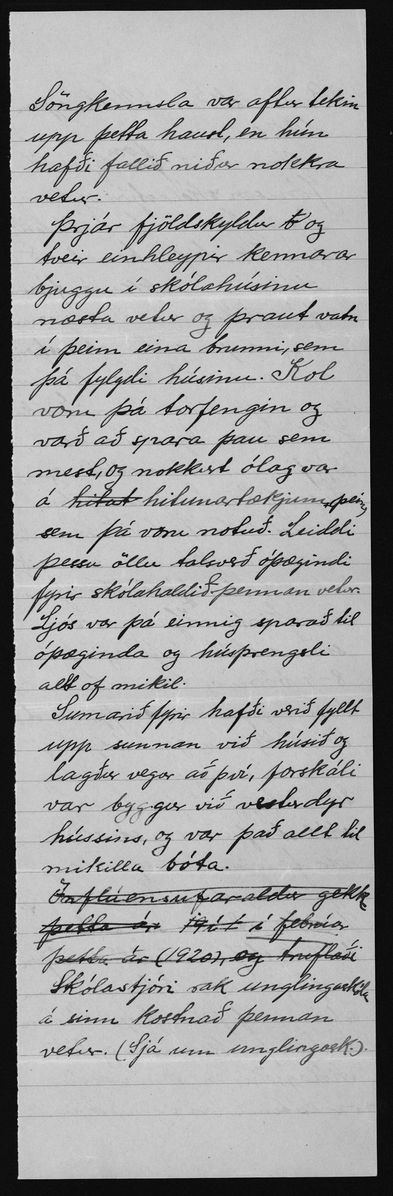 Söngkennsla var aftur tekin
upp þetta haust, en hún
hafði fallið niður nokkra
vetur.
Þrjár fjöldskyldur og
tveir einhleypir kennarar
bjuggu í skólahúsinu
næsta vetur og þraut vatn
í þeim eina brunni, sem
þá fylgdi húsinu. Kol
voru þá torfengin og
varð að spara þau sem
mest, og nokkurt ólag var
á hitat hitunartækjum þeim,
sem þá voru notuð. Leiddi
þessu öllu talsverð óþægindi
fyrir skólahaldið þennan vetur.
Ljós var þá einnig sparað til
óþæginda og húsþrengsli
allt of mikil.
Sumarið fyrir hafði verið fyllt
upp sunnan við húsið og
lagður vegur að því, forskáli
var byggur við vesturdyr
hússins, og var það allt til
mikilla bóta.
Inflúensufaraldur gekk
þetta ár í febrúar
þetta ár (1920), og truflaði
Skólastjóri rak unglingaskóla
á sinn kostnað þennan
vetur. (Sjá um unglingask.).